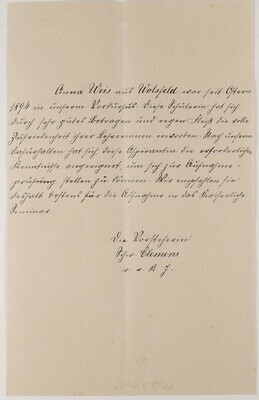 Anna Weis aus Wolsfeld war seit Ostern
1894 in unserm Vorkursus. Diese Schülerin hat sich
durch sehr gutes Betragen und regen Fleiß die volle
Zufriedenheit ihrer Lehrerinnen erworben. Nach unserm
hat sich diese Aspirantin die erforderlichen
Kenntnisse angeeignet, um sich zur Aufnahme-
prüfung stellen zu können. Wir empfehlen sie
deshalb bestens für die Aufnahme in das Kaiserliche
Seminar
Die Vorsteherin
Schw. Clemens